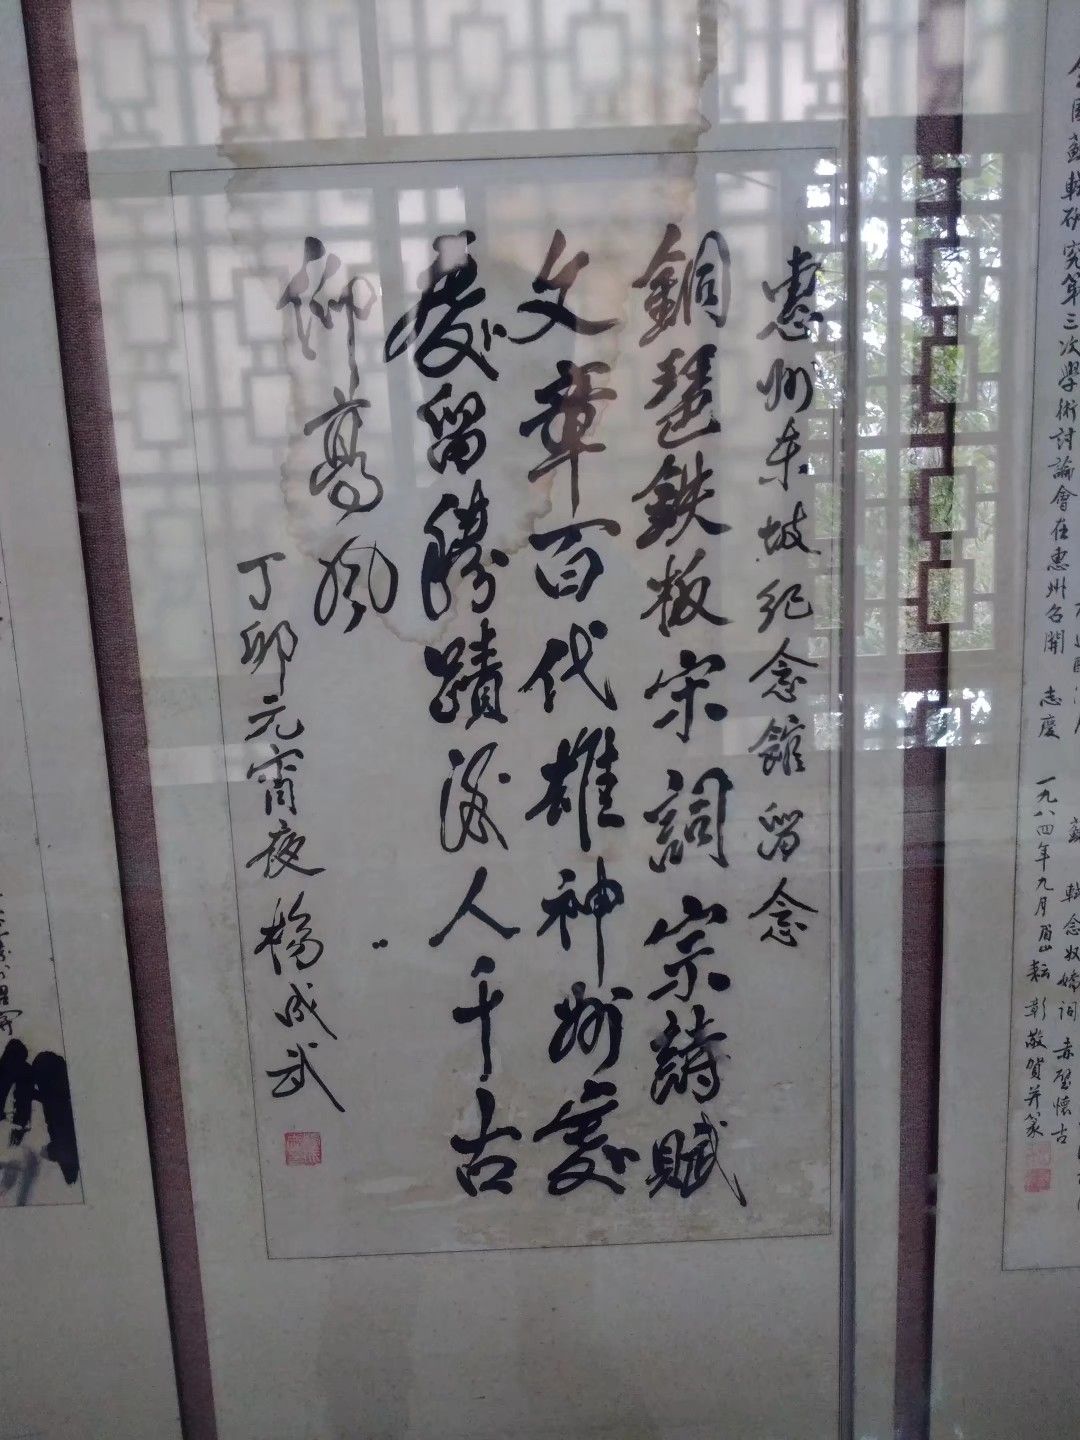 惠州东坡纪念館留念
銅琶鉄板宋詞宗詩賦
文章百代雄神州處
處留勝蹟後人千古
仰髙风
丁卯元宵夜楊成武
全国蘇軾研究第三次學術討論會在惠州召開 志慶
一九八四年九月眉山
敬賀并篆
軾念奴嬌詞赤壁懷古